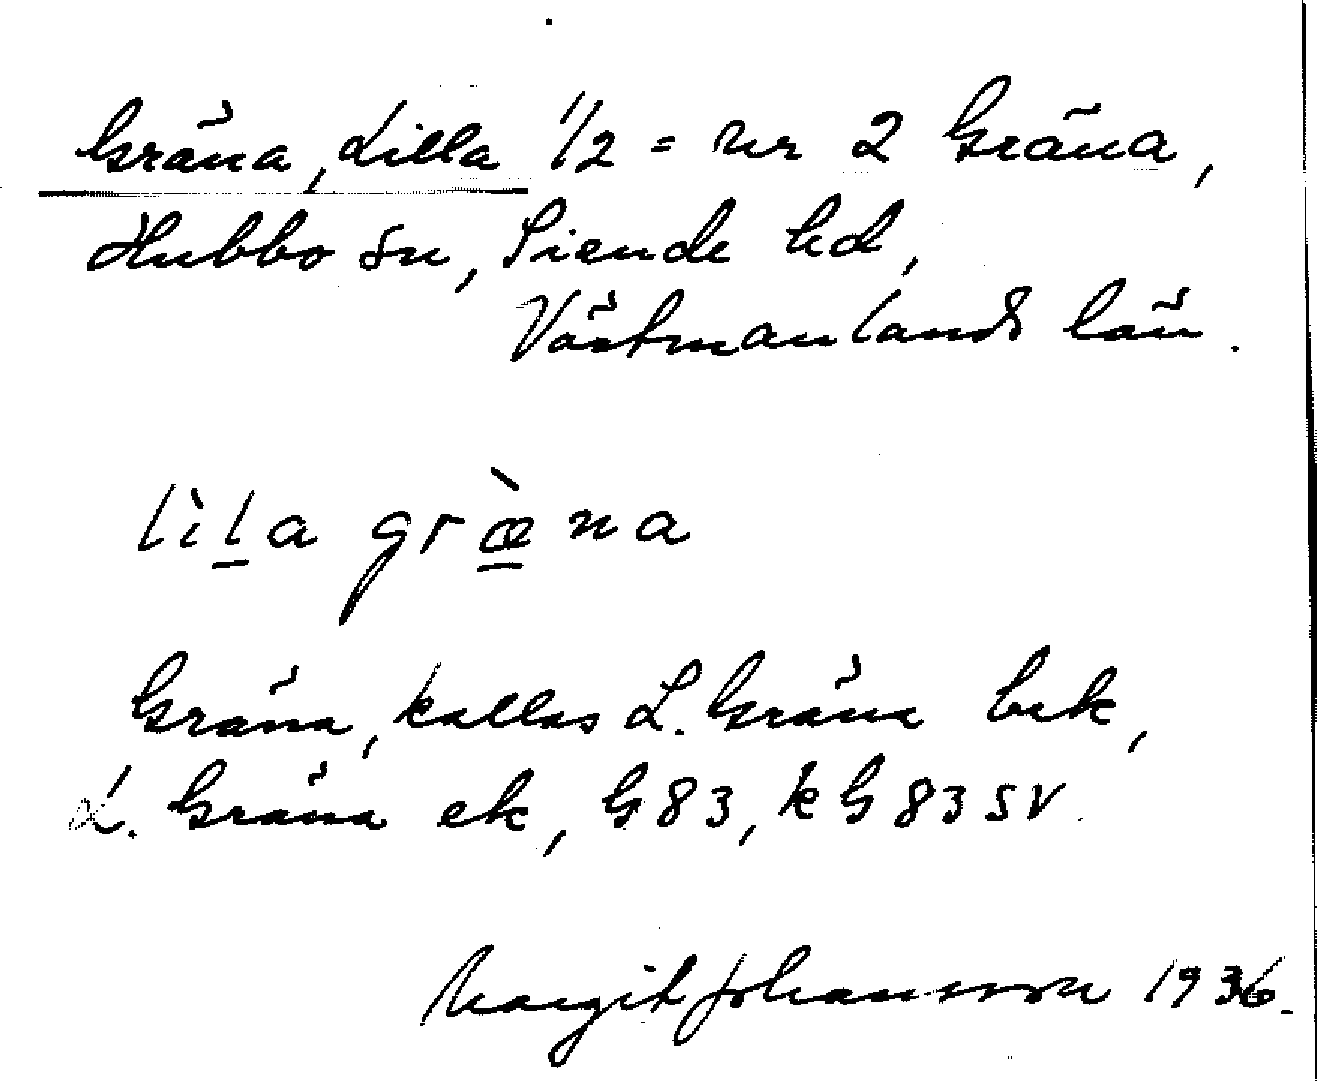 Gräna, Lilla 1/2 = nr 2 Gräna,
Hubbo sn, Siende hd,
Västmanlands län.
lìl̲a græ̲̀na
Gräna, kallas L. Gräna bek,
L. Gräna ek, G 83, k G 83 SV.
Margit Johansson 1936.